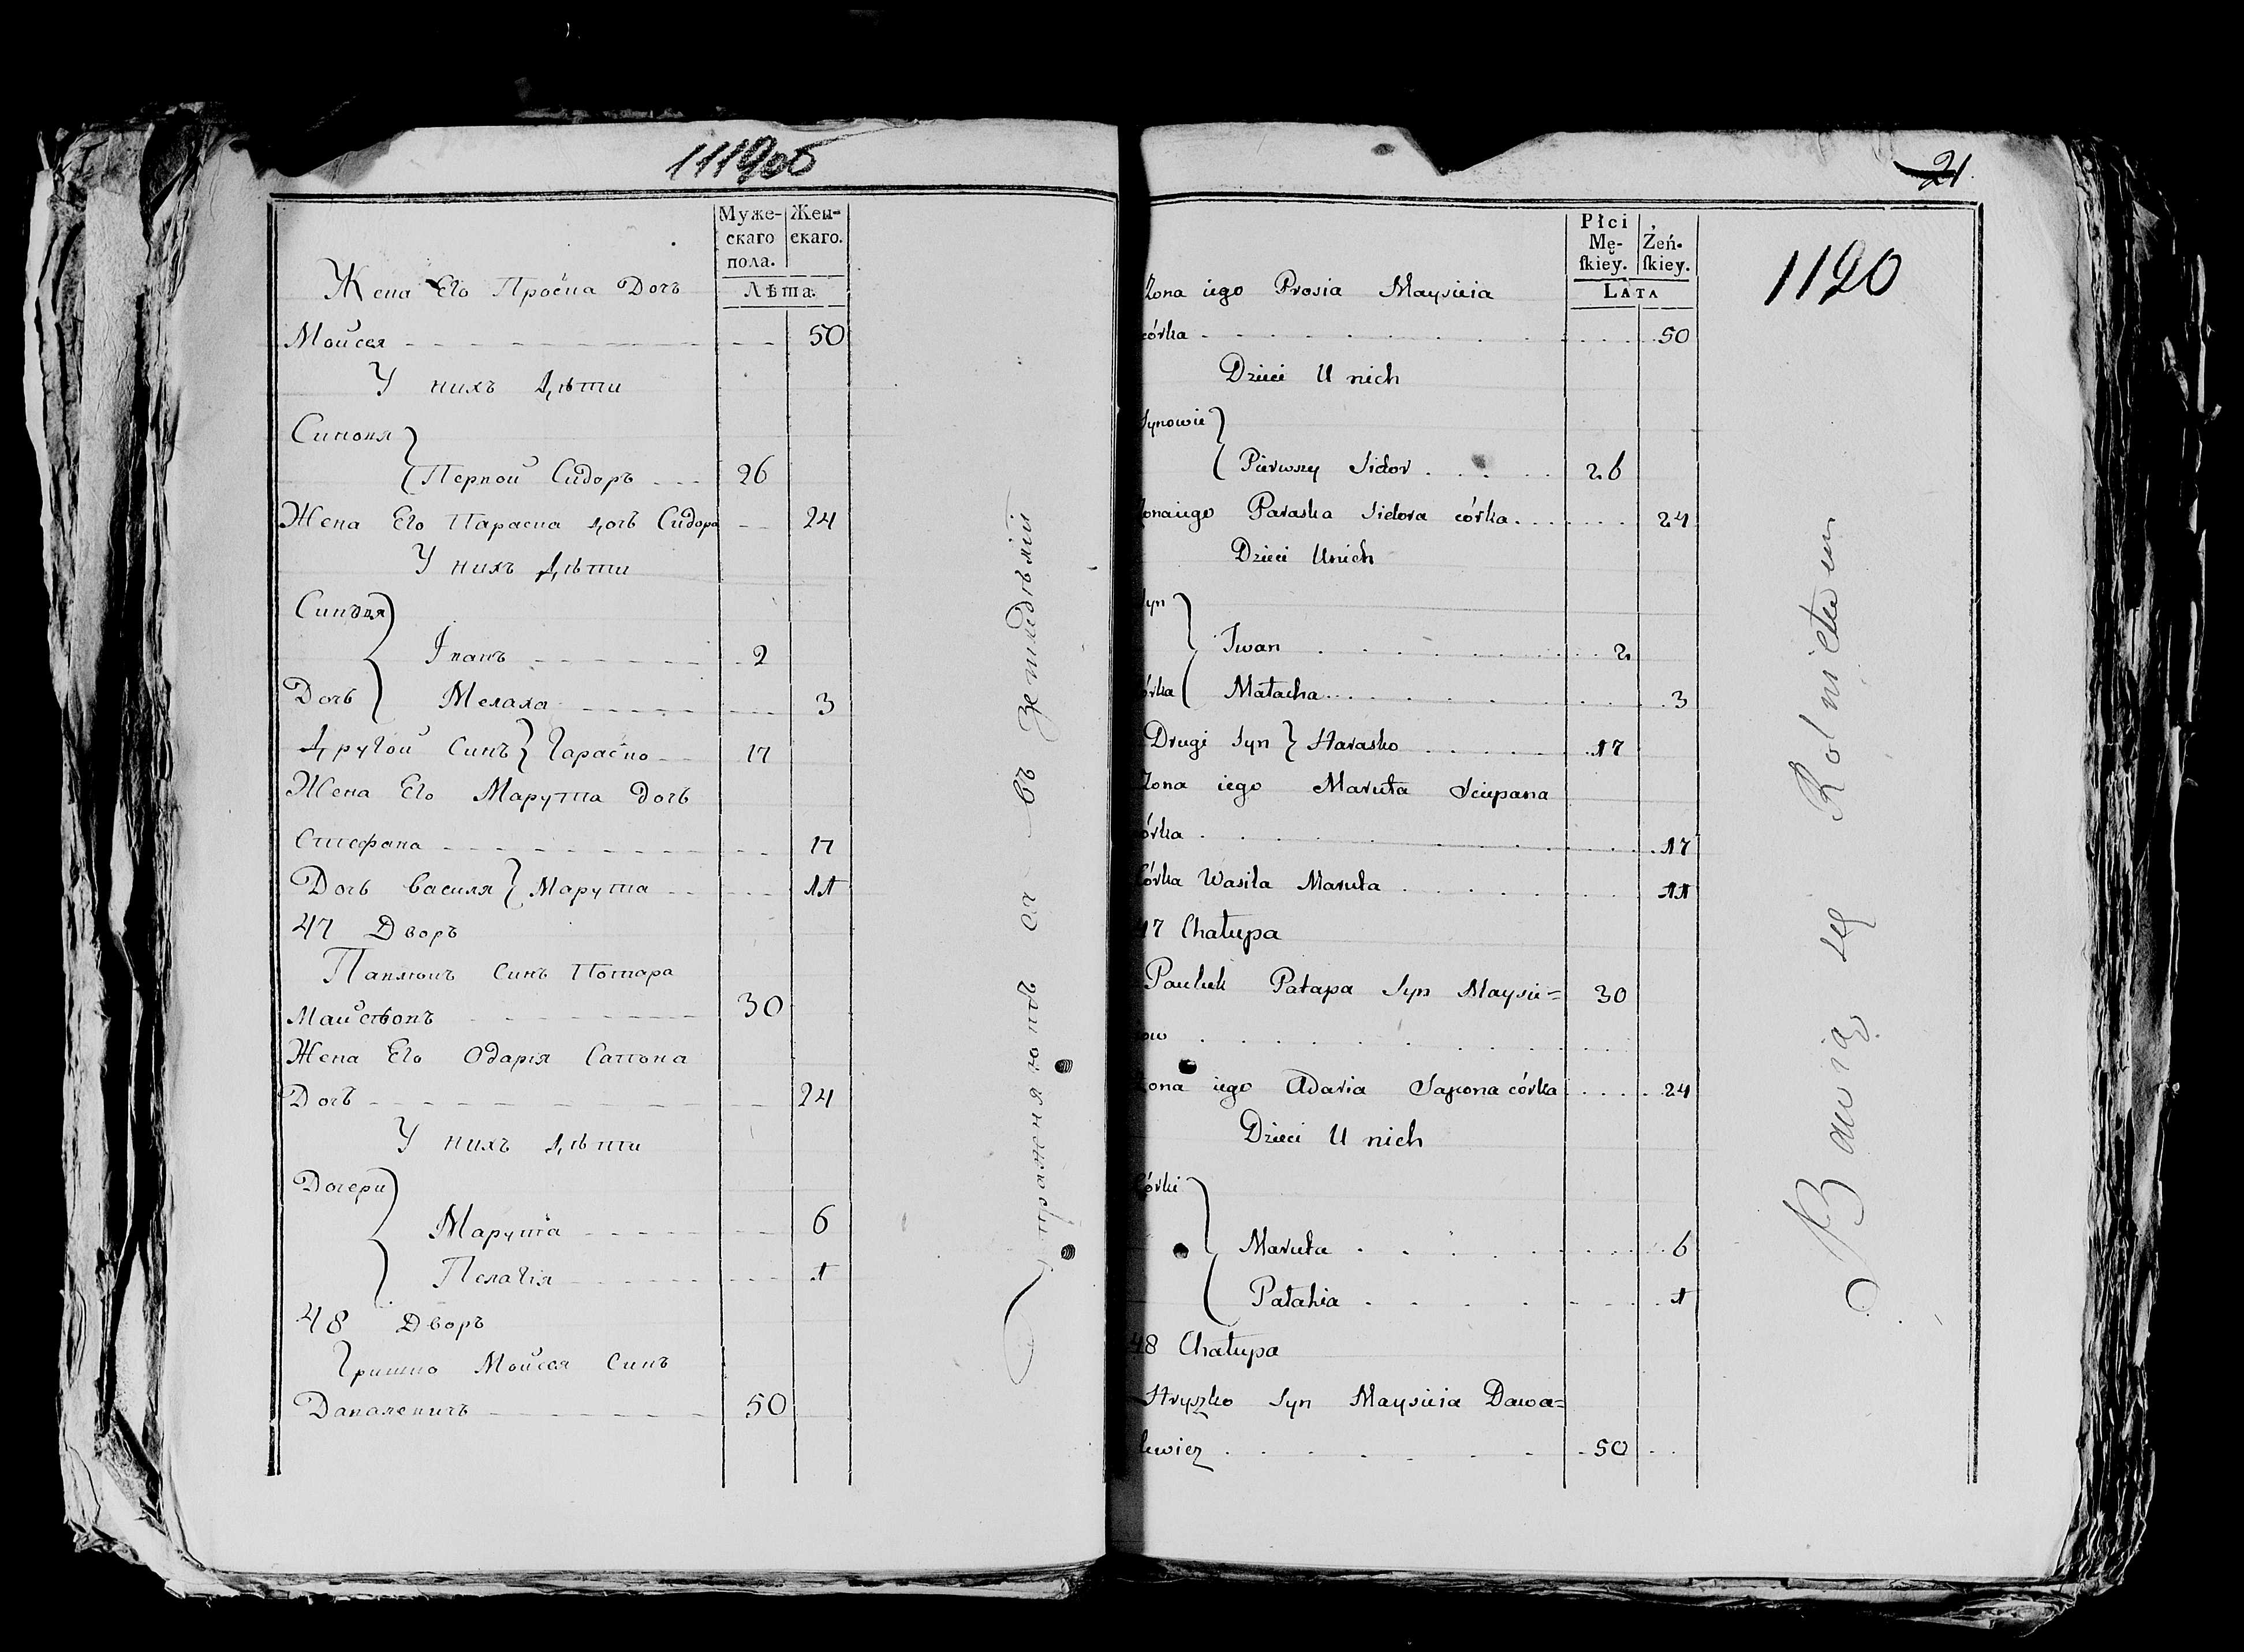 1119об
Муже-
скаго
пола.
Жен-
скаго.
Лѣта.
Жена Его Проска Дочь
Мойсея 50
У нихъ Дѣти
Синовя
Первой Сидоръ 26
Жена Его Параска дочь Сидора 24
У нихъ Дѣти
Іванъ 2
Дочь Мелаха 3
Другой Синъ Гараско 17
Жена Его Марута дочь
Стефана 17
Дочь Василя Марута 11
47 Дворъ
Павлюкъ Синъ Потапа
30
Жена Его Одарія Сапона
Дочь 24
У нихъ Дѣти
Дочери
Марута 6
Пелагія 1
48 Дворъ
Гришко Мойсея Синъ
Давалевичъ 50
упраженяютъ ся въ Земледѣліи
21
1120
Płci
Mę-
ſkiey.
Żeń-
ſkiey.
LATA
Zona iego Prosia Maysieia
córka 50
Dzieci U nich
Synowie
Pierwszy Sidor 26
Zona iego Paraska Sidora córka 24
Dzieci U nich
Syn
Iwan 2
córka Małacha 3
Drugi Syn Harasko 17
Zona iego Maruta Sciepana
córka 17
Córka Wasila Maruta 11
47 Chałupa
Pauluk Patapa Syn Maysie=
ow 30
Zona iego Adaria Sapona córka 24
Dzieci U nich
Córki
Maruta 6
Patahia 1
48 Chałupa
Hryszko Syn Maysieia Dawa=
lewicz 50
Bawią się Rolnictwem